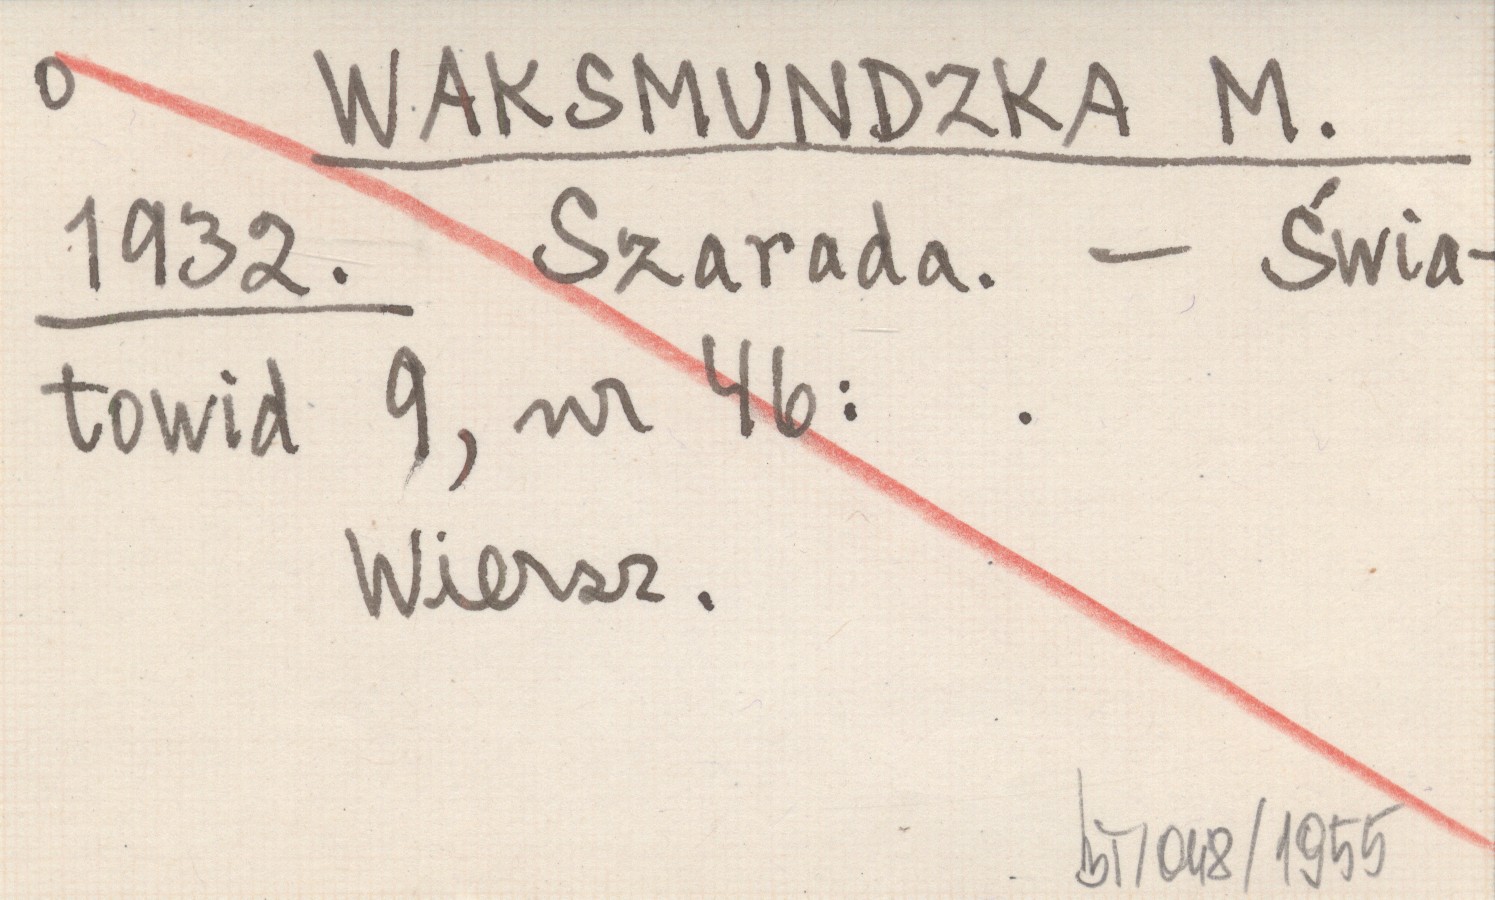 o WAKSMUNDZKA M.
1932. Szarada. — Świa-
towid 9, nr 46: .
Wiersz.
/048/1955